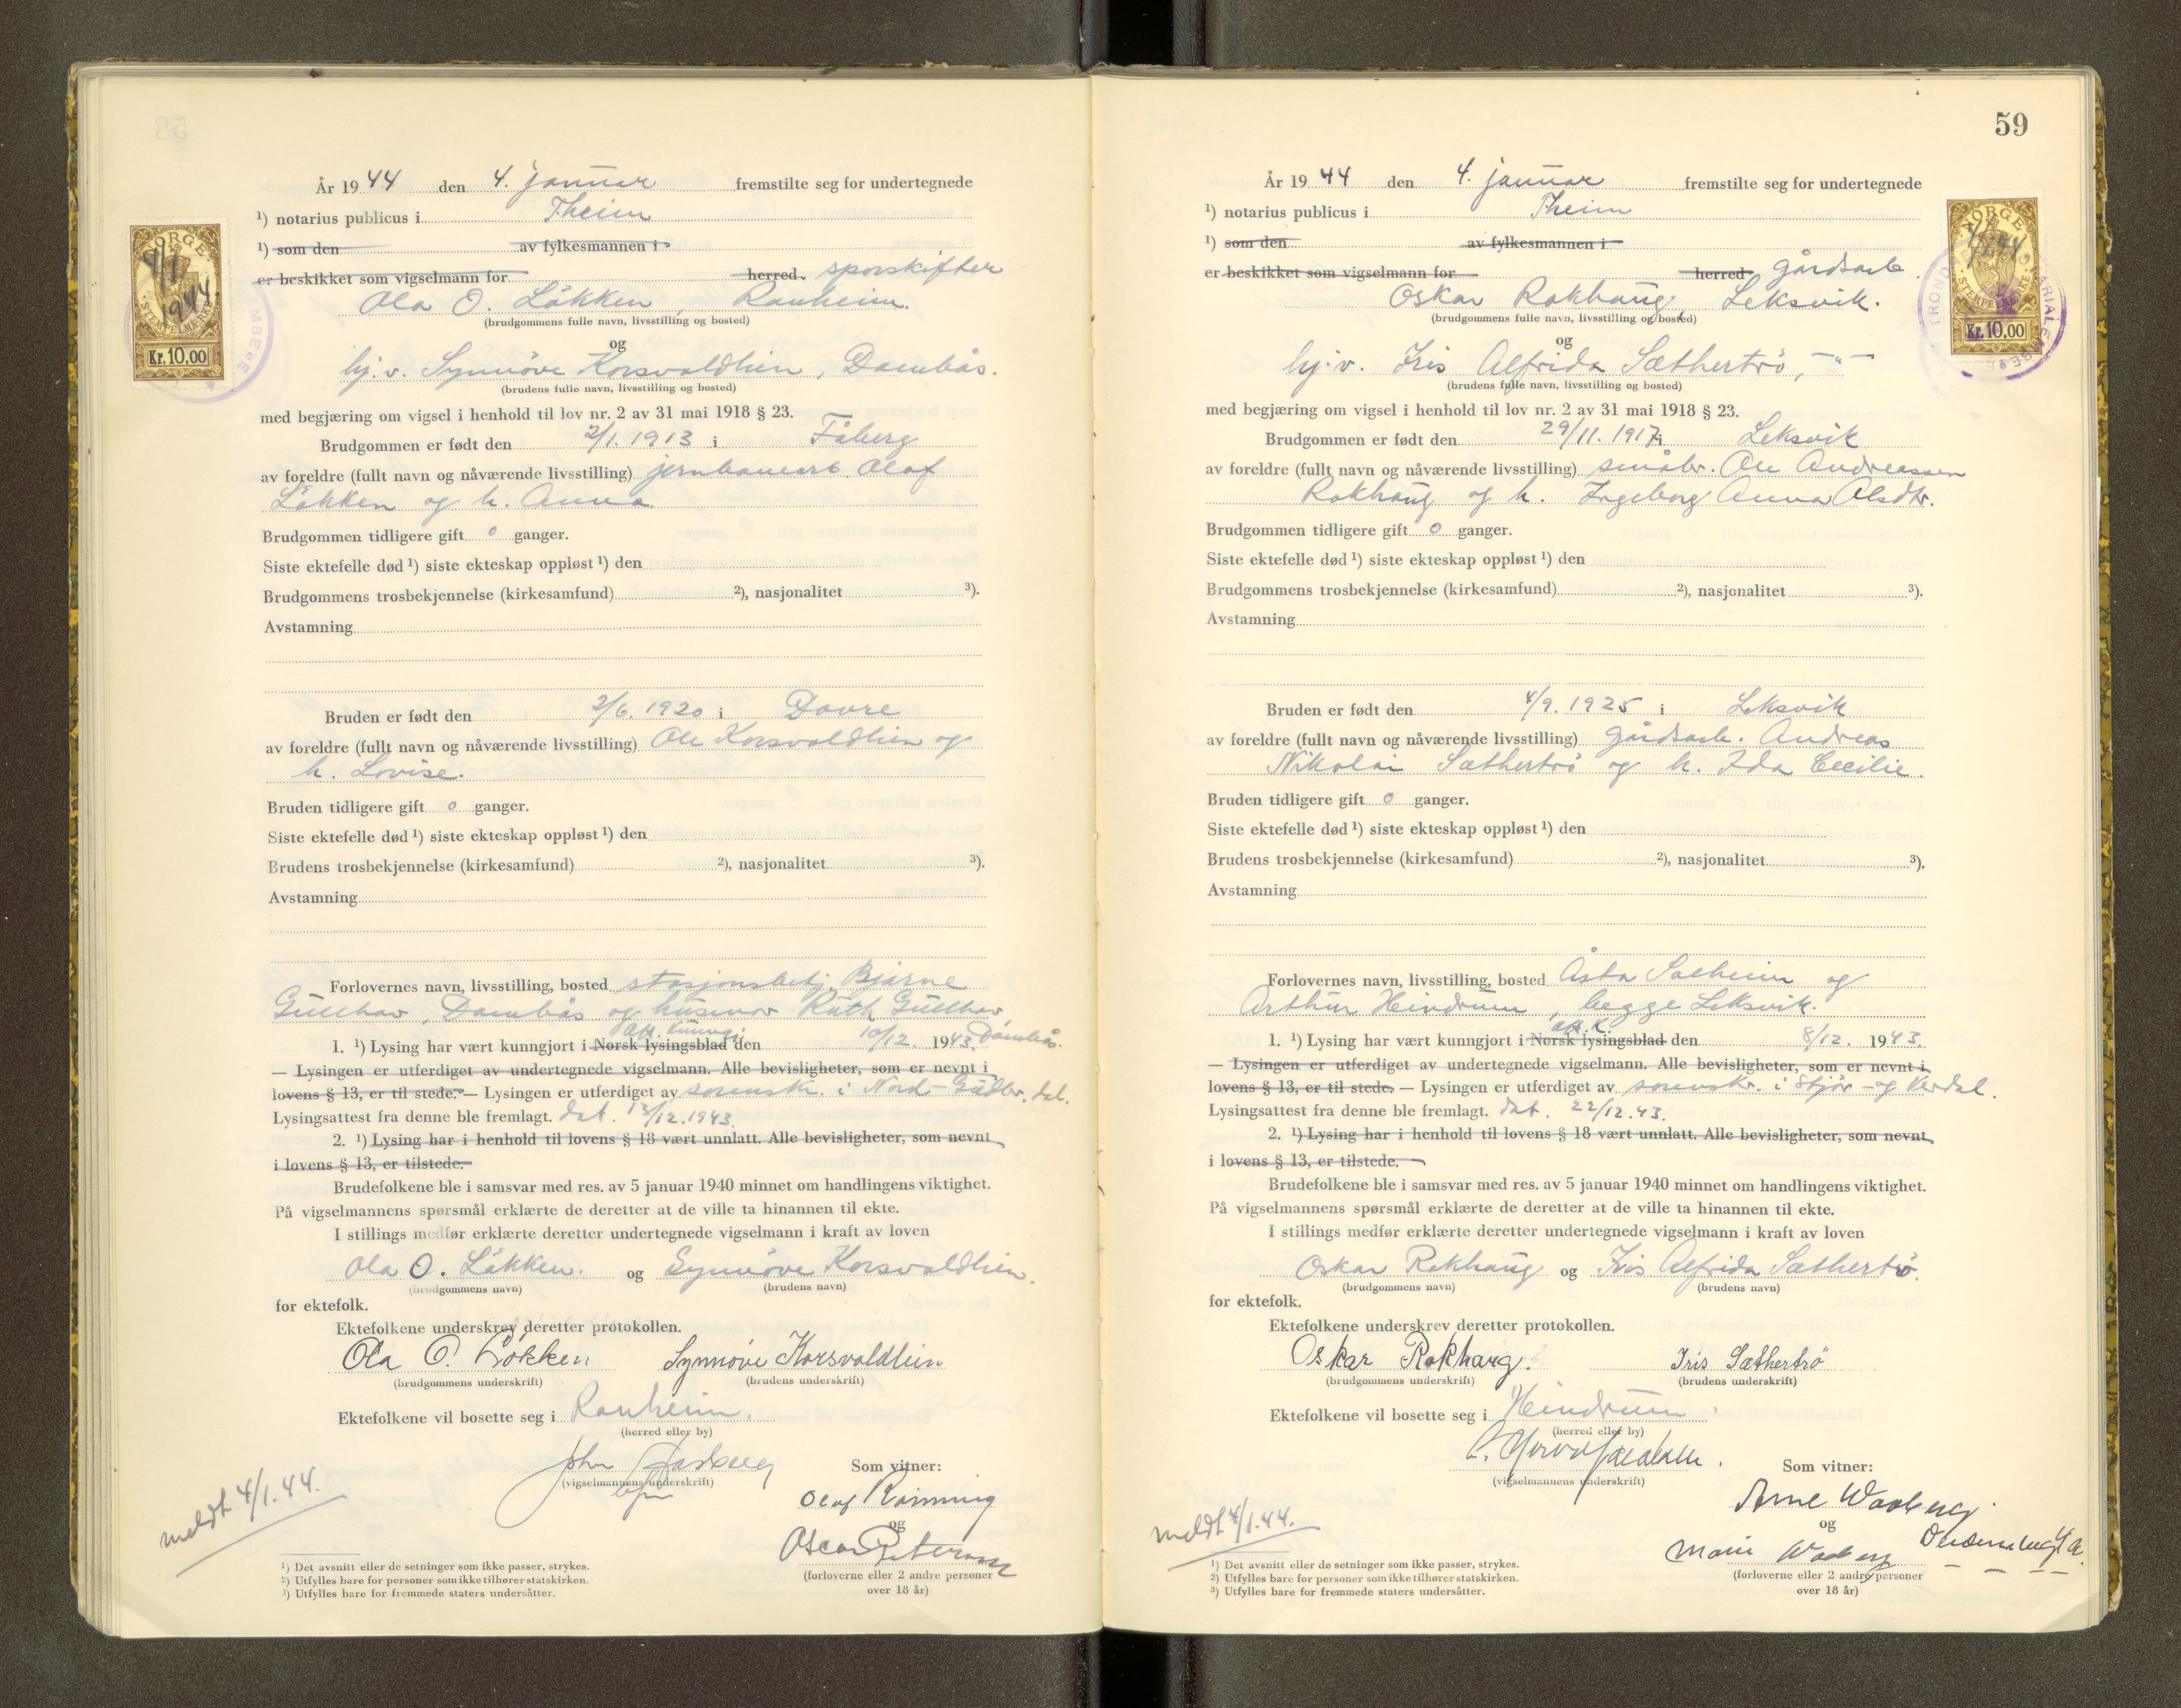 År 1944 den 4. januar fremstilte seg for undertegnede
¹) notarius publicus i Theim
¹) som den av fylkesmannen i
er beskikket som vigselmann for herred. sporskifter
Ola O. Løkken, Ranheim.
(brudgommens fulle navn, livsstilling og bosted)
og
hj.v. Synnöve Korsvoldhien, Dombås.
(brudens fulle navn, livsstilling og bosted)
med begjæring om vigsel i henhold til lov nr. 2 av 31 mai 1918 § 23.
Brudgommen er født den 2/1. 1913 i Fåberg
av foreldre (fullt navn og nåværende livsstilling) jernbanearb. Olaf
Løkken og h. Anna.
Brudgommen tidligere gift 0 ganger.
Siste ektefelle død ¹) siste ekteskap oppløst ¹) den
Brudgommens trosbekjennelse (kirkesamfund) ²), nasjonalitet ³).
Avstamning
Bruden er født den 2/6. 1920 i Dovre
av foreldre (fullt navn og nåværende livsstilling) Ole Korsvoldhien og
h. Lovise.
Bruden tidligere gift 0 ganger.
Siste ektefelle død ¹) siste ekteskap oppløst ¹) den
Brudens trosbekjennelse (kirkesamfund) ²), nasjonalitet ³).
Avstamning
Forlovernes navn, livsstilling, bosted stasjonsbetj. Bjarne
Gullhav, Dombås og husmor Ruth Gullhav,
Dombås.
1. ¹) Lysing har vært kunngjort i Norsk lysingsblad den 10/12. 1943.
— Lysingen er utferdiget av undertegnede vigselmann. Alle bevisligheter, som er nevnt i
lovens § 13, er til stede. — Lysingen er utferdiget av sorenskr. i Nord-Gudbr.dal.
Lysingsattest fra denne ble fremlagt. dat. 13/12.1943.
2. ¹) Lysing har i henhold til lovens § 18 vært unnlatt. Alle bevisligheter, som nevnt
i lovens § 13, er tilstede.
Brudefolkene ble i samsvar med res. av 5 januar 1940 minnet om handlingens viktighet.
På vigselmannens spørsmål erklærte de deretter at de ville ta hinannen til ekte.
I stillings medfør erklærte deretter undertegnede vigselmann i kraft av loven
Ola O. Løkken. og Synnöve Korsvoldhien.
(brudgommens navn) (brudens navn)
for ektefolk.
Ektefolkene underskrev deretter protokollen.
Ola O. Løkken Synnöve Korsvoldhien
(brudgommens underskrift) (brudens underskrift)
Ektefolkene vil bosette seg i Ranheim.
(herred eller by)
John
(vigselmannens underskrift)
Som vitner:
Olaf Rønning
og
Oscar Peterson
(forloverne eller 2 andre personer
over 18 år)
meldt 4/1.44.
¹) Det avsnitt eller de setninger som ikke passer, strykes.
²) Utfylles bare for personer som ikke tilhører statskirken.
³) Utfylles bare for fremmede staters undersåtter.
NORGE
4/1
1944
STEMPELMERKE
Kr. 10,00
59
År 1944 den 4. januar fremstilte seg for undertegnede
¹) notarius publicus i Theim
¹) som den av fylkesmannen i
er beskikket som vigselmann for herred gårdsarb.
Oskar Rokhaug, Leksvik.
(brudgommens fulle navn, livsstilling og bosted)
og
hj.v. Iris Alfrida Sæthertrö, —"—
(brudens fulle navn, livsstilling og bosted)
med begjæring om vigsel i henhold til lov nr. 2 av 31 mai 1918 § 23.
Brudgommen er født den 29/11. 1917 i Leksvik
av foreldre (fullt navn og nåværende livsstilling) småbr. Ole Andreassen
Rokhaug og h. Ingeborg Anna Olsdtr.
Brudgommen tidligere gift 0 ganger.
Siste ektefelle død ¹) siste ekteskap oppløst ¹) den
Brudgommens trosbekjennelse (kirkesamfund) ²), nasjonalitet ³).
Avstamning
Bruden er født den 4/9. 1925 i Leksvik
av foreldre (fullt navn og nåværende livsstilling) gårdsarb. Andreas
Nikolai Sæthertrö og h. Ida Cecilie.
Bruden tidligere gift 0 ganger.
Siste ektefelle død ¹) siste ekteskap oppløst ¹) den
Brudens trosbekjennelse (kirkesamfund) ²), nasjonalitet ³).
Avstamning
Forlovernes navn, livsstilling, bosted Åsta Solheim og
Arthur Heindrum, begge Leksvik.
1. ¹) Lysing har vært kunngjort i Norsk lysingsblad den 8/12. 1943.
— Lysingen er utferdiget av undertegnede vigselmann. Alle bevisligheter, som er nevnt i
lovens § 13, er til stede. — Lysingen er utferdiget av sorenskr. i Stjör- og Verdal.
Lysingsattest fra denne ble fremlagt. dat. 22/12.43.
2. ¹) Lysing har i henhold til lovens § 18 vært unnlatt. Alle bevisligheter, som nevnt
i lovens § 13, er tilstede.
Brudefolkene ble i samsvar med res. av 5 januar 1940 minnet om handlingens viktighet.
På vigselmannens spørsmål erklærte de deretter at de ville ta hinannen til ekte.
I stillings medfør erklærte deretter undertegnede vigselmann i kraft av loven
Oskar Rokhaug og Iris Alfrida Sæthertrö.
(brudgommens navn) (brudens navn)
for ektefolk.
Ektefolkene underskrev deretter protokollen.
Oskar Rokhaug. Iris Sæthertrö
(brudgommens underskrift) (brudens underskrift)
Ektefolkene vil bosette seg i Heindrum.
(herred eller by)
(vigselmannens underskrift)
Som vitner:
Arne Waaberg
og
Marie Waaberg
(forloverne eller 2 andre personer
over 18 år)
meldt 4/1.44.
¹) Det avsnitt eller de setninger som ikke passer, strykes.
²) Utfylles bare for personer som ikke tilhører statskirken.
³) Utfylles bare for fremmede staters undersåtter.
NORGE
STEMPELMERKE
Kr. 10,00